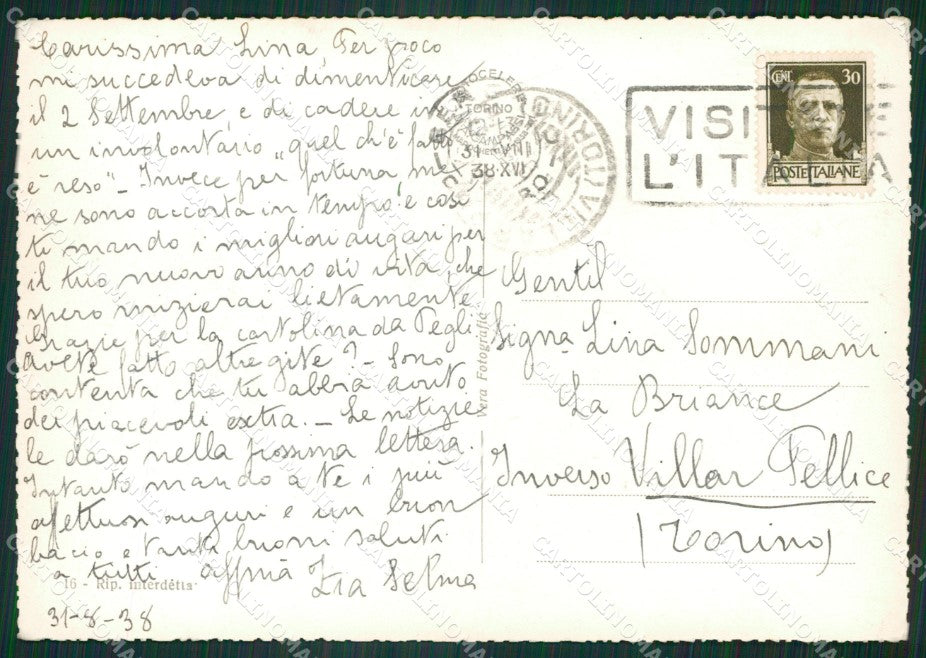 Carissima Lina Per poco
mi succedeva di dimenticare
il 2 Settembre e di cadere in
un involontario "quel ch'è fatto
è reso" - Invece per fortuna, me
ne sono accorta in tempo e così
ti mando i migliori auguri per
il tuo nuovo anno di vita, che
spero inizierai lietamente
Grazie per la cartolina da Pegli
avete fatto altre gite? - Sono
contenta che tu abbia avuto
dei piacevoli extra. - Le notizie
le darò nella prossima lettera.
Intanto mando a te i più
affettuosi auguri e un buon
bacio e tanti buoni saluti
a tutti affma Zia Selma
16 - Rip. interdetta
31-8-38
Vera Fotografia
TORINO
31 VIII
38·XVI
VISITATE
L'ITALIA
CENT. 30
POSTE ITALIANE
Gentil
Signa Lina Sommani
La Briance
Inverso Villar Pellice
(Torino)
CARTOLINOMANIA